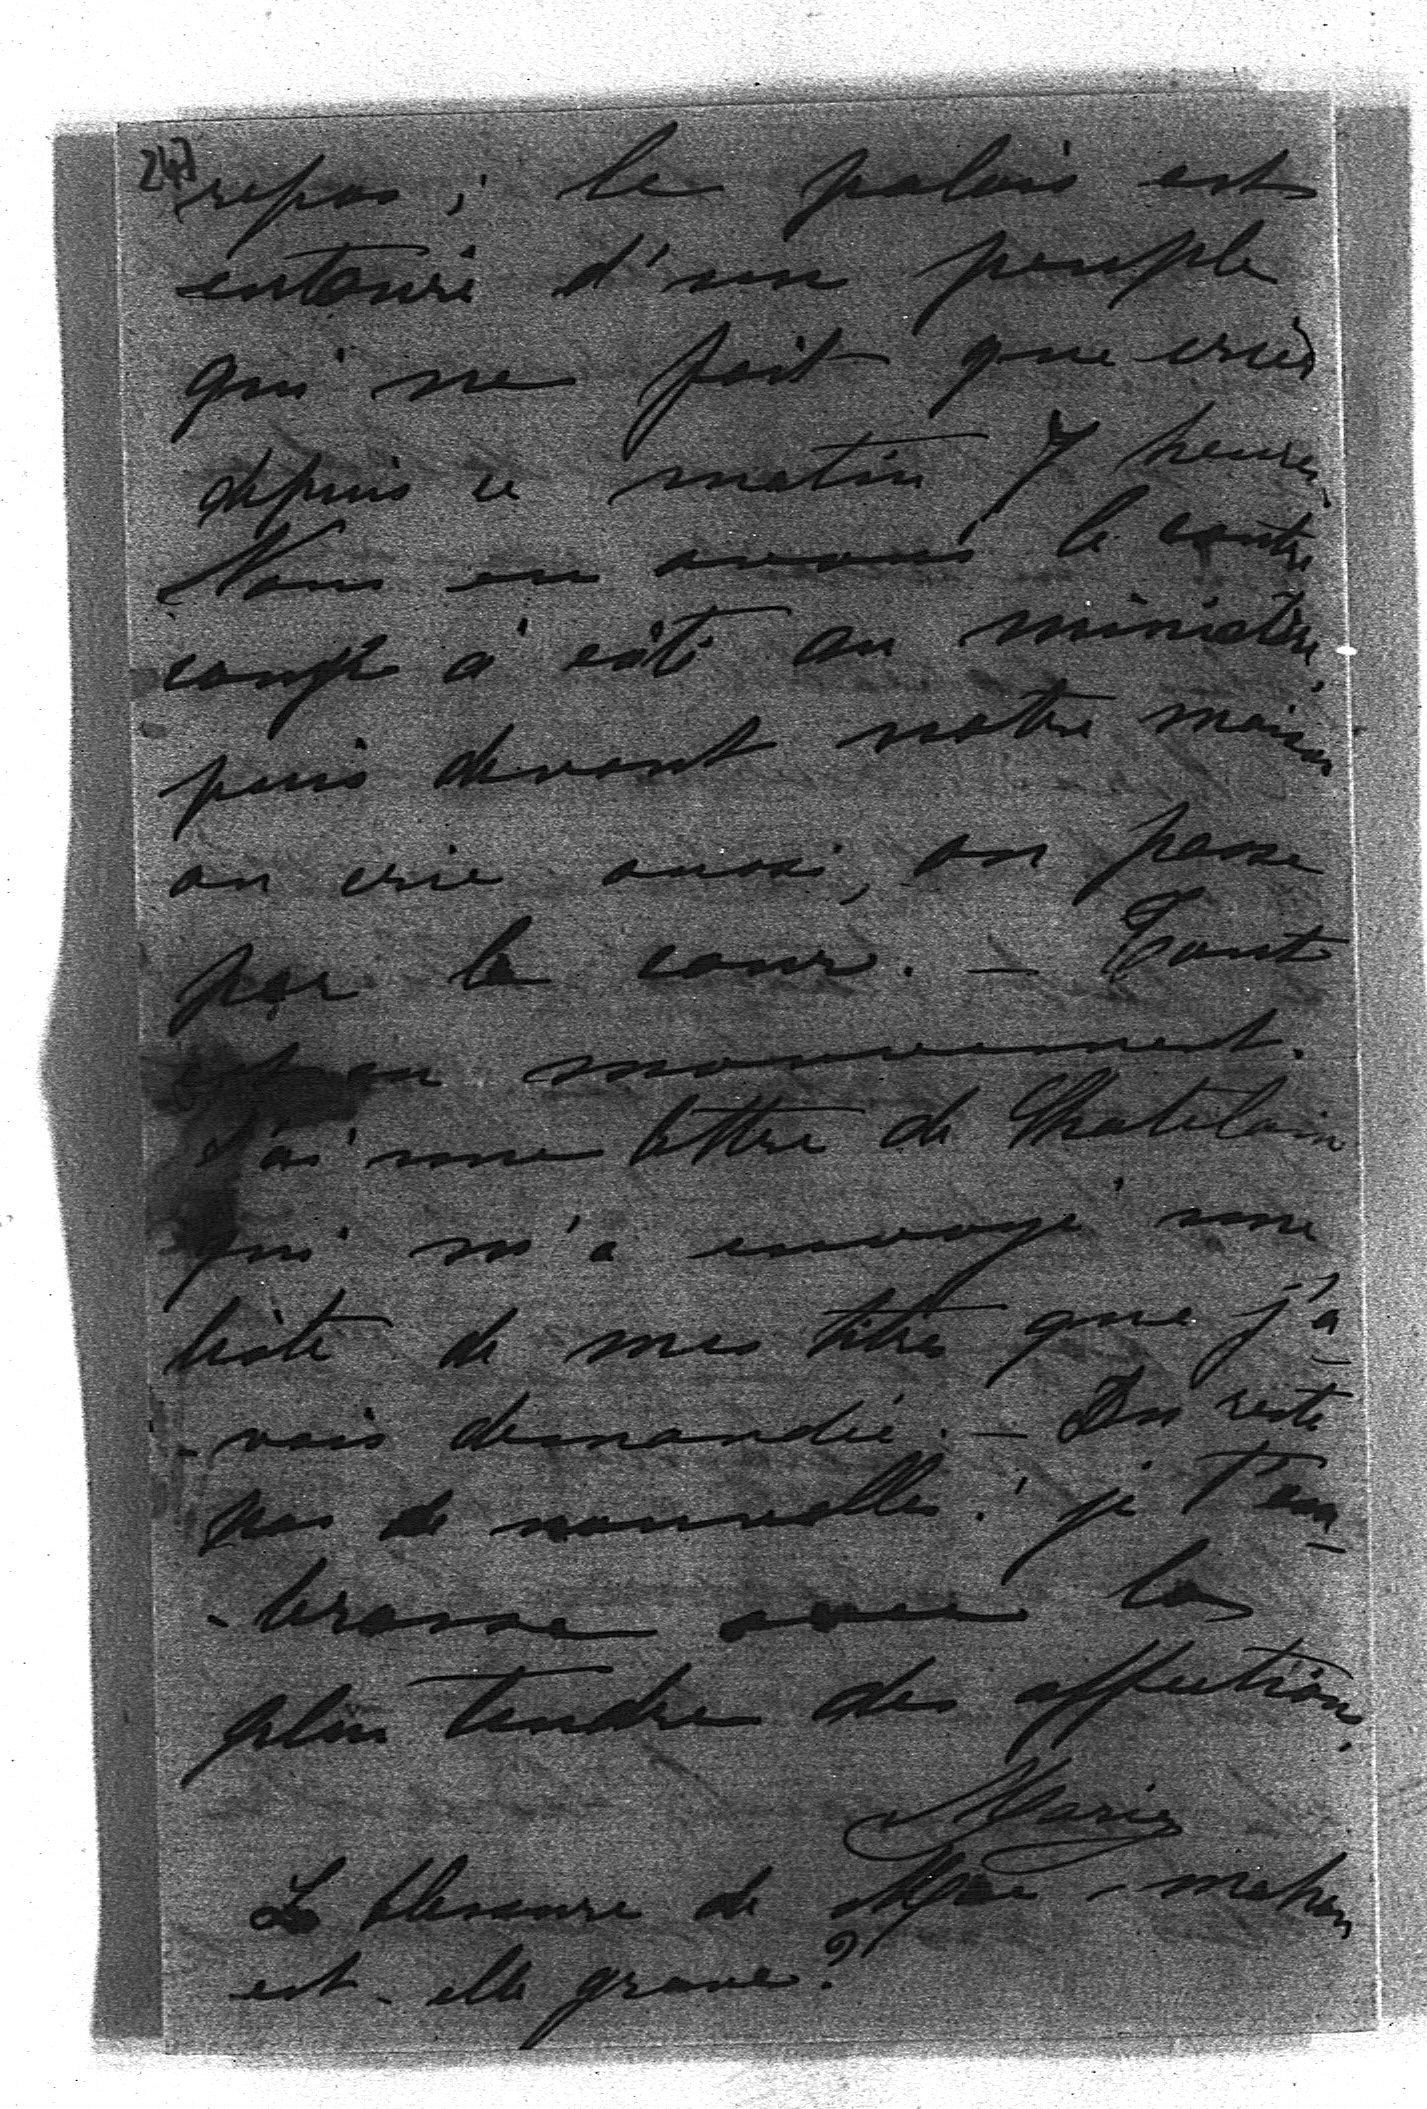 repos ; le palais est
entouré d'un peuple
qui ne fait que crier
depuis ce matin 7 heures.
Nous en avons le contre
coup à côté au ministère,
puis devant notre maison
on crie aussi, on passe
par la cour. — Tout
est en mouvement.
J'ai une lettre de Chatelain
qui m'a envoyé une
liste de mes titres que j'a-
-vais demandée. — Du reste
pas de nouvelles. je t'em-
-brasse avec la
plus tendre des affections.
Marie
La blessure de Mac-mahon
est-elle grave?